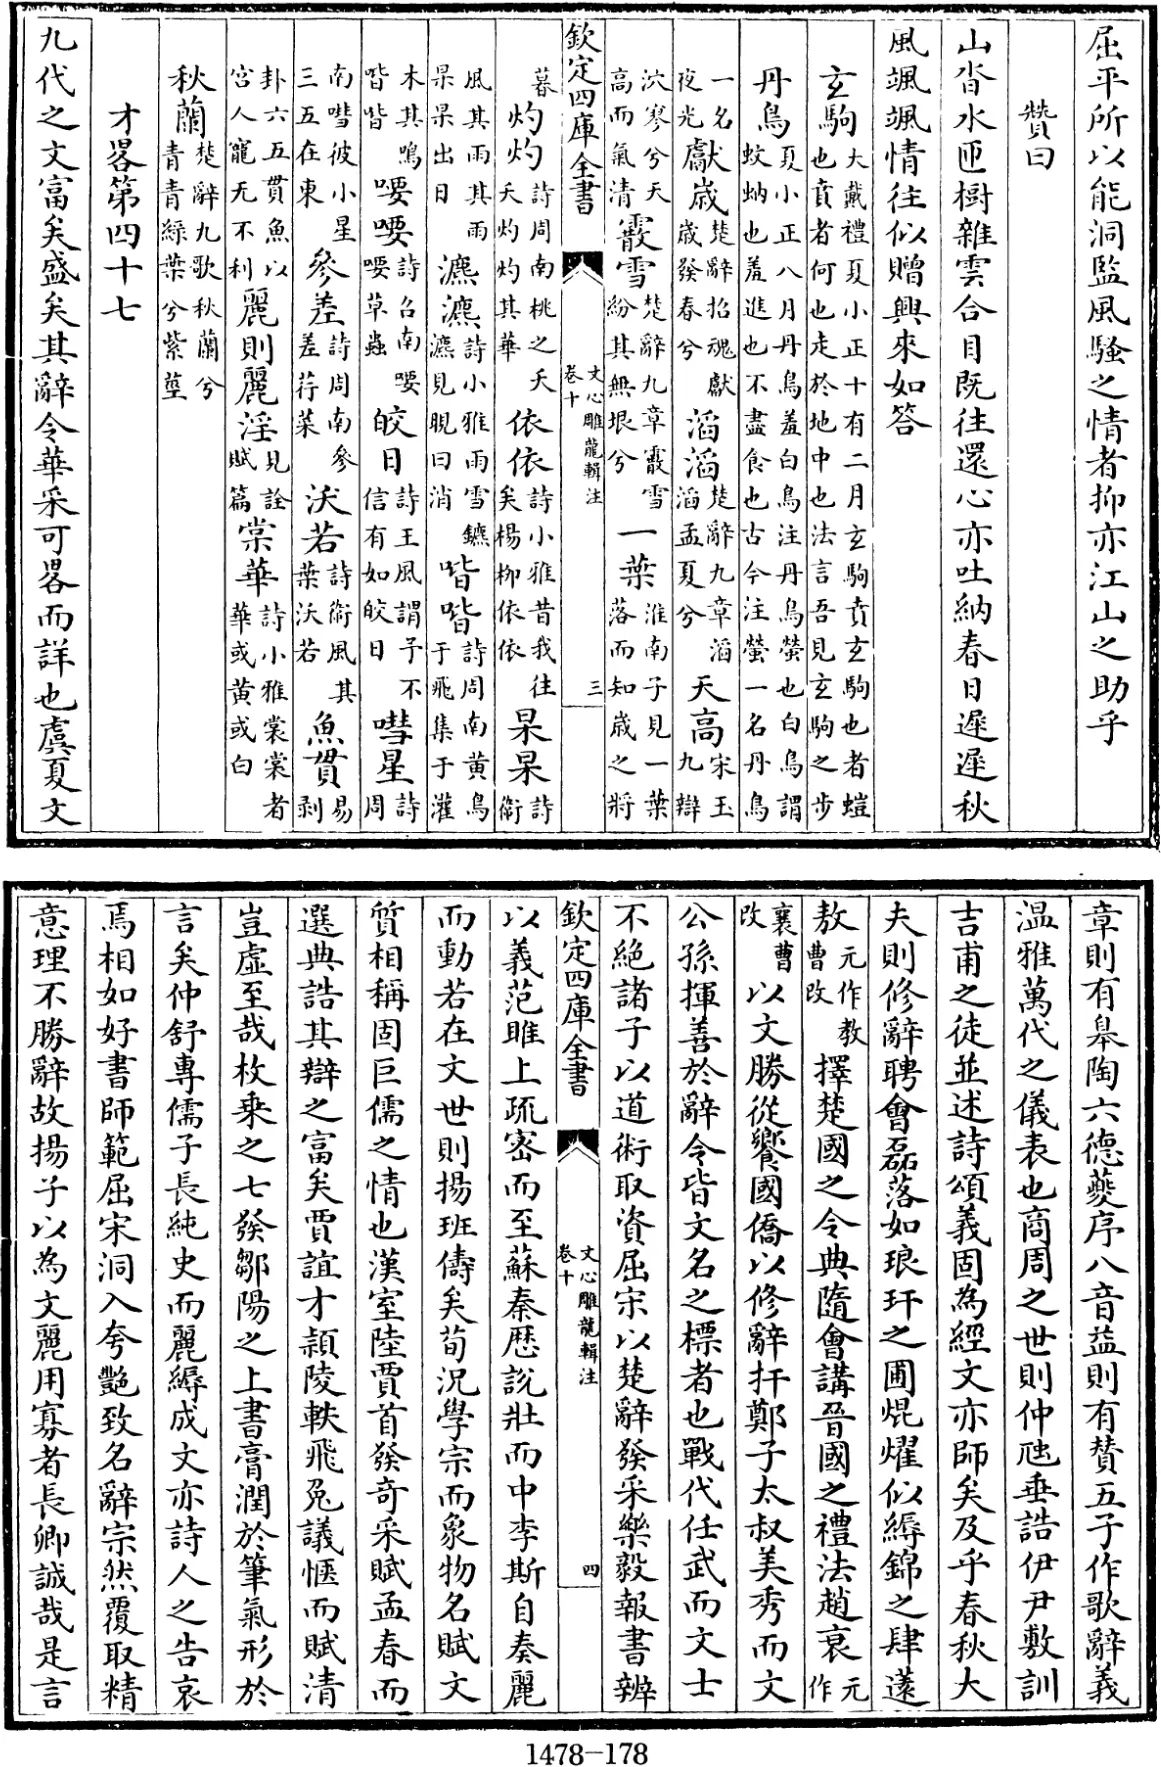 屈平所以能洞監風騷之情者抑亦江山之助乎
贊曰
山沓水匝樹雜雲合目既往還心亦吐納春日遲遲秋
風颯颯情往似贈興來如答
玄駒大戴禮夏小正十有二月玄駒賁玄駒也者螘也賁者何也走於地中也法言吾見玄駒之步
丹鳥夏小正八月丹鳥羞白鳥注丹鳥螢也白鳥謂蚊蚋也羞進也不盡食也古今注螢一名丹鳥
一名夜光獻歳楚辭招魂獻歳發春兮滔滔楚辭九章滔滔孟夏兮天高宋玉九辯
泬寥兮天高而氣清霰雪楚辭九章霰雪紛其無垠兮一葉淮南子見一葉落而知歳之將
欽定四庫全書 文心雕龍輯注 卷十 三
暮灼灼詩周南桃之夭夭灼灼其華依依詩小雅昔我往矣楊柳依依杲杲詩衛
風其雨其雨杲杲出日瀌瀌詩小雅雨雪瀌瀌見晛曰消喈喈詩周南黄鳥于飛集于灌
木其鳴喈喈喓喓詩召南喓喓草蟲皎日詩王風謂予不信有如皎日嘒星詩周
南嘒彼小星三五在東參差詩周南參差荇菜沃若詩衛風其葉沃若魚貫易剥
卦六五貫魚以宫人寵无不利麗則麗淫見詮賦篇棠華詩小雅裳裳者華或黄或白
秋蘭楚辭九歌秋蘭兮青青緑葉兮紫莖
才畧第四十七
九代之文富矣盛矣其辭令華采可畧而詳也虞夏文
章則有臯陶六德夔序八音益則有贊五子作歌辭義
温雅萬代之儀表也商周之世則仲虺垂誥伊尹敷訓
吉甫之徒並述詩頌義固為經文亦師矣及乎春秋大
夫則修辭聘會磊落如琅玕之圃焜燿似縟錦之肆薳
敖元作教曹改擇楚國之令典隨會講晉國之禮法趙衰元作
襄曹改以文勝從饗國僑以修辭扞鄭子太叔美秀而文
公孫揮善於辭令皆文名之標者也戰代任武而文士
不絶諸子以道術取資屈宋以楚辭發采樂毅報書辨
欽定四庫全書 文心雕龍輯注 卷十 四
以義范雎上疏密而至蘇秦歴説壯而中李斯自奏麗
而動若在文世則揚班儔矣荀況學宗而象物名賦文
質相稱固巨儒之情也漢室陸賈首發奇采賦孟春而
選典誥其辯之富矣賈誼才穎陵軼飛兔議愜而賦清
豈虚至哉枚乗之七發鄒陽之上書膏潤於筆氣形於
言矣仲舒專儒子長純史而麗縟成文亦詩人之告哀
焉相如好書師範屈宋洞入夸艷致名辭宗然覆取精
意理不勝辭故揚子以為文麗用寡者長卿誠哉是言
1478-178